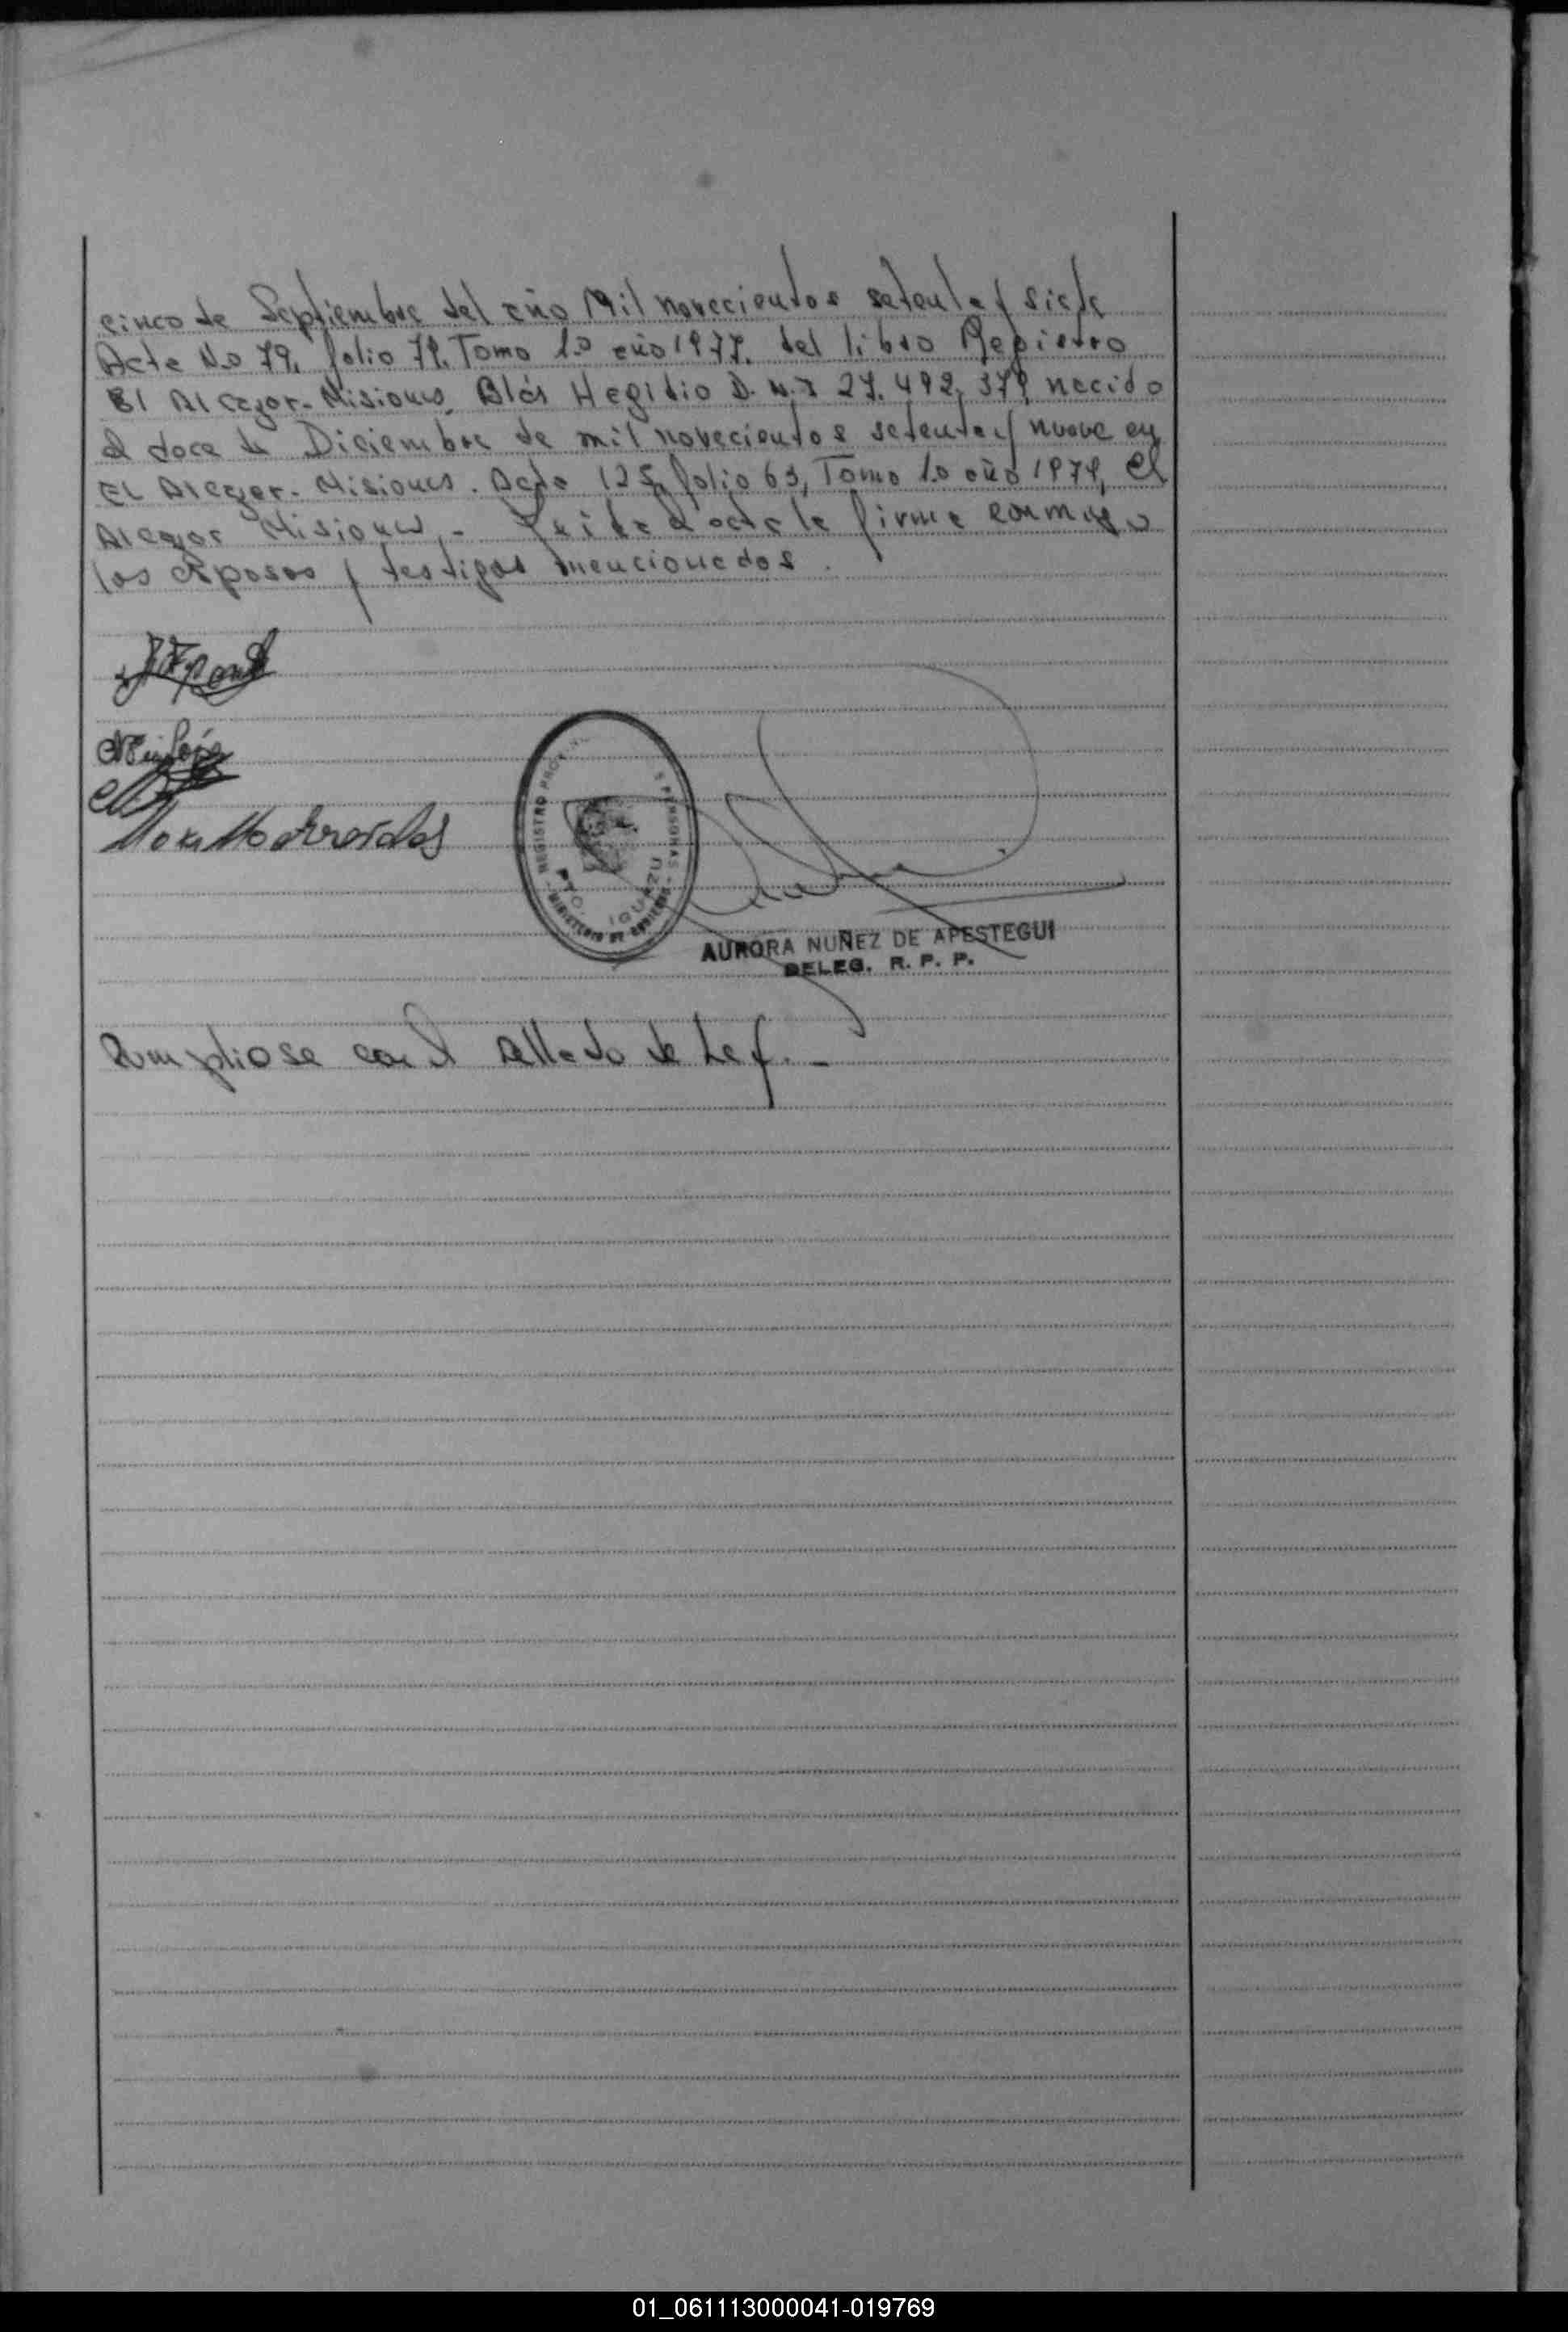 cinco de Septiembre del año Mil novecientos setenta y siete
Acta No 79, folio 79. Tomo 1.o año 1977. del libro Registro
El Alcazar. Misiones, Blás Hegidio D. N. I 27.492.379 nacido
el doce de Diciembre de mil novecientos setenta y nueve en
EL Alcazar. Misiones. Acta 125, folio 63, Tomo 1.o año 1979, El
Alcazar Misiones.- el acta la firma conmigo
los esposos y testigos mencionados.
REGISTRO PROV PERSONAS
PTO. IGUAZU
MINISTERIO DE GOBIERNO
AURORA NUÑEZ DE APESTEGUI
DELEG. R. P. P.
Cumpliose con el sellado de Ley.-
01_061113000041-019769